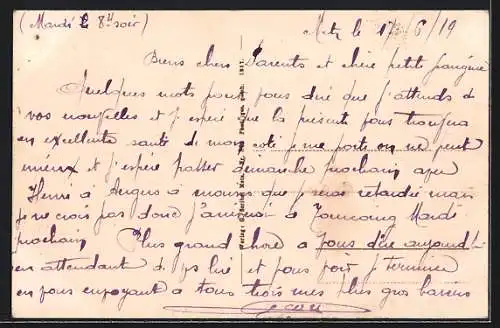 (Mardi le 8h soir)
Metz le 17/6/19
Biens chers Parents et chère petite frangine
Quelques mots pour vous dire que j'attends de
vos nouvelles et j'espère que la présente vous trouvera
en excellente santé de mon coté je me porte on ne peut
mieux et j'espère passer dimanche prochain avec
Henri à moins que je sois retardé mais
je ne crois pas donc j'arriverai à Mardi
prochain Plus grand chose à vous dire aujourd'hui
en attendant de vous lire et vous voir je termine
en vous envoyant à tous trois mes plus gros baisers